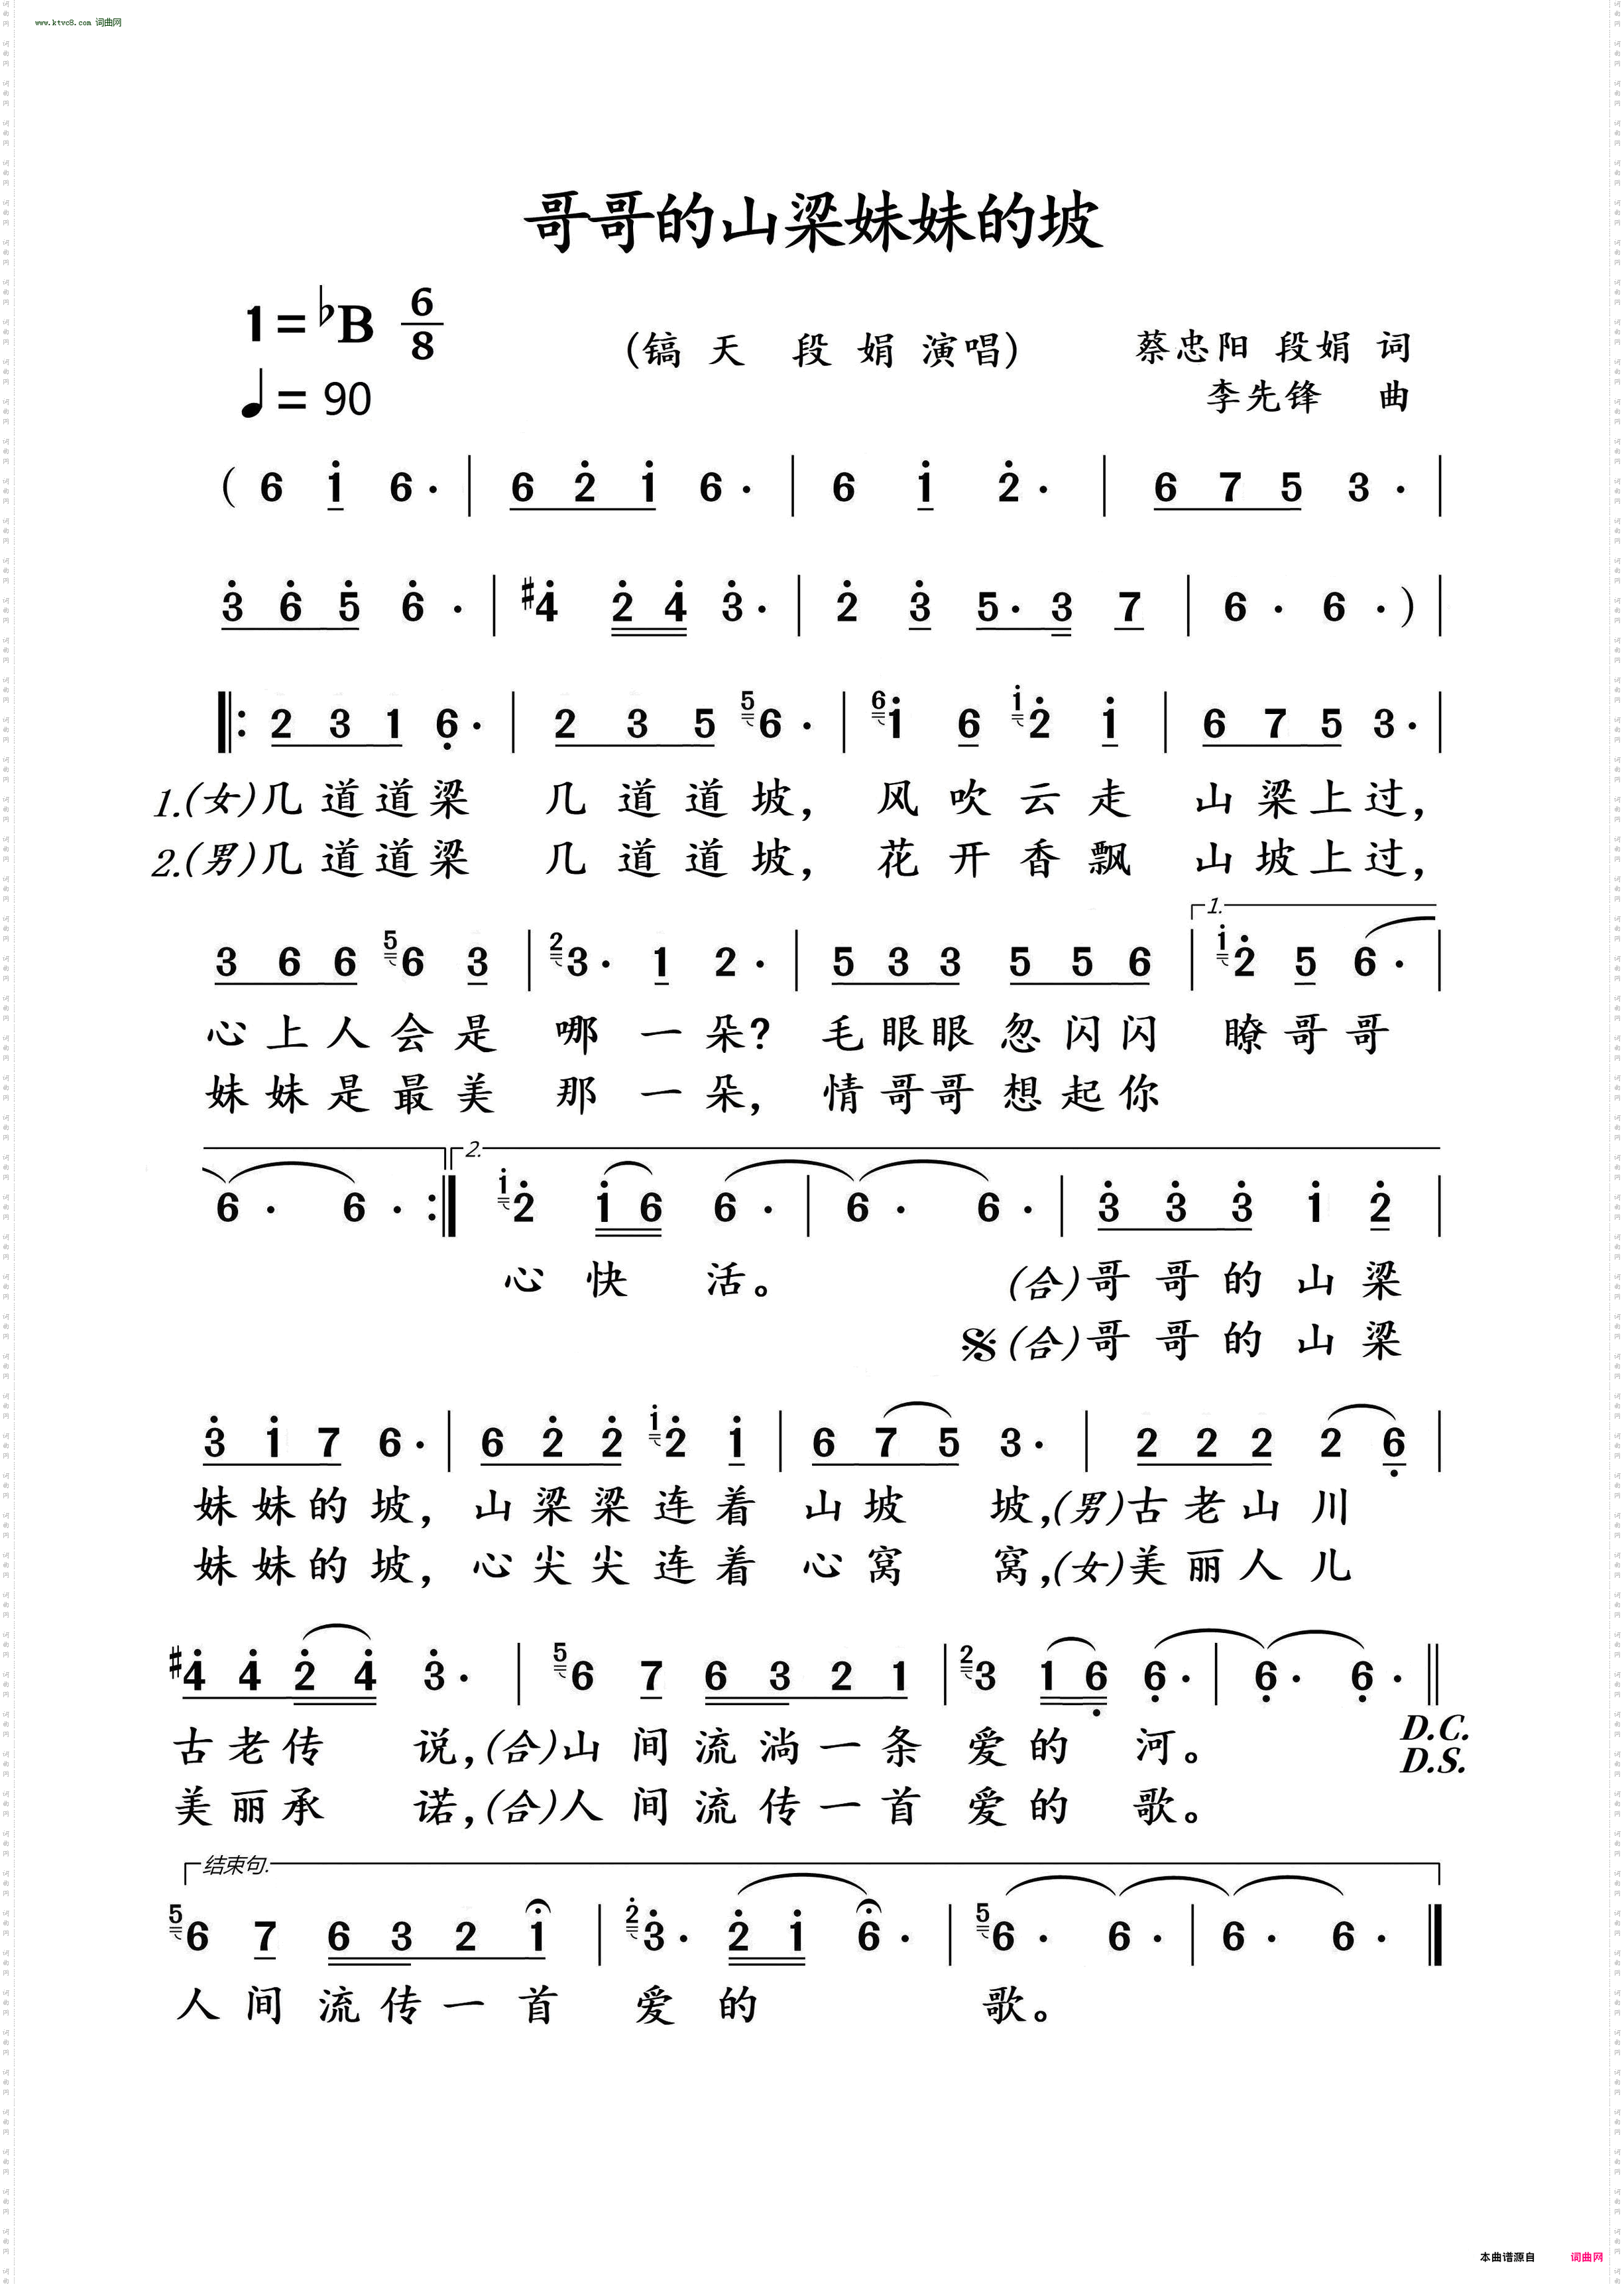 www.ktvc8.com 词曲网
哥哥的山梁妹妹的坡
1=♭B 6/8
(镐天 段娟 演唱) 蔡忠阳 段娟 词
♩= 90
李先锋 曲
( 6 i 6· | 6 2̇ i 6· | 6 i 2̇· | 6 7 5 3· |
3̇ 6̇ 5̇ 6̇· | #4̇ 2̇ 4̇ 3̇· | 2̇ 3̇ 5· 3 7 | 6· 6· ) |
‖: 2 3 1 6̣· | 2 3 5 5 6· | 6 i 6 i 2̇ i | 6 7 5 3· |
1.(女)几道道梁 几道道坡, 风吹云走 山梁上过,
2.(男)几道道梁 几道道坡, 花开香飘 山坡上过,
1.
3 6 6 5 6 3 | 2 3· 1 2· | 5 3 3 5 5 6 | i 2̇ 5 6· |
心上人会是 哪一朵? 毛眼眼忽闪闪 瞭哥哥
妹妹是最美 那一朵, 情哥哥想起你
2.
6· 6· :‖ i 2̇ i 6 6· | 6· 6· | 3̇ 3̇ 3̇ i 2̇ |
心快活。 (合)哥哥的山梁
𝄋(合)哥哥的山梁
3̇ i 7 6· | 6 2̇ 2̇ i 2̇ i | 6 7 5 3· | 2 2 2 2 6̣ |
妹妹的坡, 山梁梁连着 山坡坡,(男)古老山川
妹妹的坡, 心尖尖连着 心窝窝,(女)美丽人儿
#4̇ 4̇ 2̇ 4̇ 3̇· | 5 6 7 6 3 2 1 | 2 3 1 6̣ 6̣· | 6̣· 6̣· ‖
古老传说,(合)山间流淌一条爱的河。 D.C.
D.S.
美丽承诺,(合)人间流传一首爱的歌。
结束句.
5 6 7 6 3 2 1 | 2̇ 3̇· 2̇ i 6· | 5 6· 6· | 6· 6· ‖
人间流传一首 爱的 歌。
本曲谱源自 词曲网